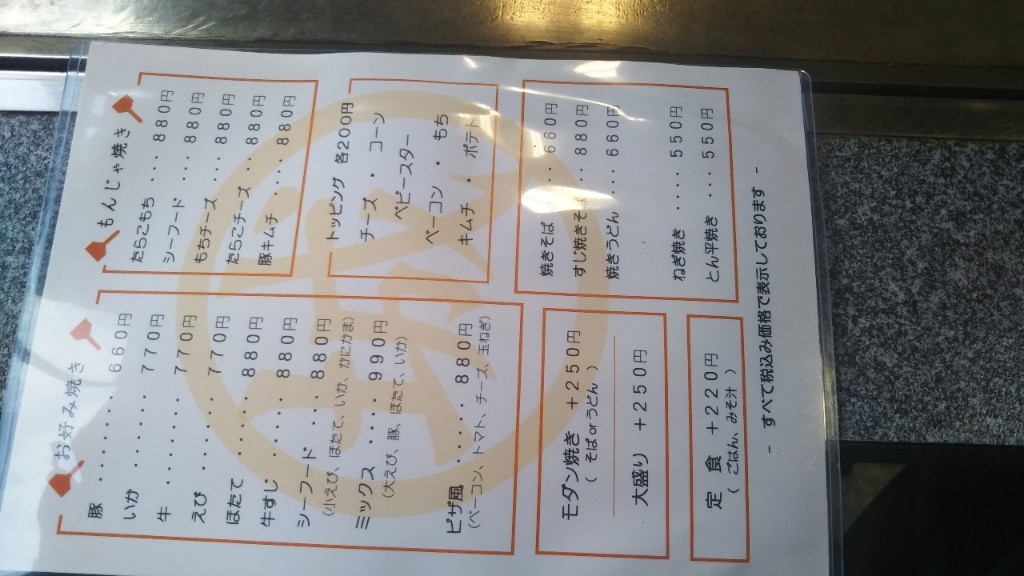 お好み焼き
豚・・・・・・・・660円
いか・・・・・・・770円
牛・・・・・・・・770円
えび・・・・・・・770円
ほたて・・・・・・880円
牛すじ・・・・・・880円
シーフード・・・・880円
(小えび、ほたて、いか、かにかま)
ミックス・・・990円
(大えび、豚、ほたて、いか)
ピザ風・・・・・・880円
(ベーコン、トマト、チーズ、玉ねぎ)
もんじゃ焼き
たらこもち・・・880円
シーフード・・・880円
もちチーズ・・・880円
たらこチーズ・・・880円
豚キムチ・・・・880円
トッピング 各200円
チーズ ・ コーン
ベビースター
ベーコン ・ もち
キムチ ・ ポテト
モダン焼き +250円
( そばorうどん )
大盛り +250円
焼きそば・・・660円
すじ焼きそば・・・880円
焼きうどん・・・660円
ねぎ焼き・・・・550円
とん平焼き・・・550円
定 食 +220円
( ごはん、みそ汁 )
- すべて税込み価格で表示しております -